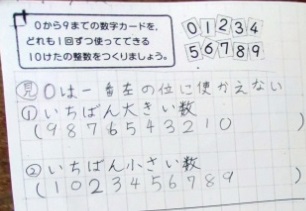 0から9までの数字カードを、
どれも1回ずつ使ってできる
10けたの整数をつくりましょう。
0 1 2 3 4
5 6 7 8 9
見 0は一番左の位に使かえない
① いちばん大きい数
(9 8 7 6 5 4 3 2 1 0 )
② いちばん小さい数
(1 0 2 3 4 5 6 7 8 9 )